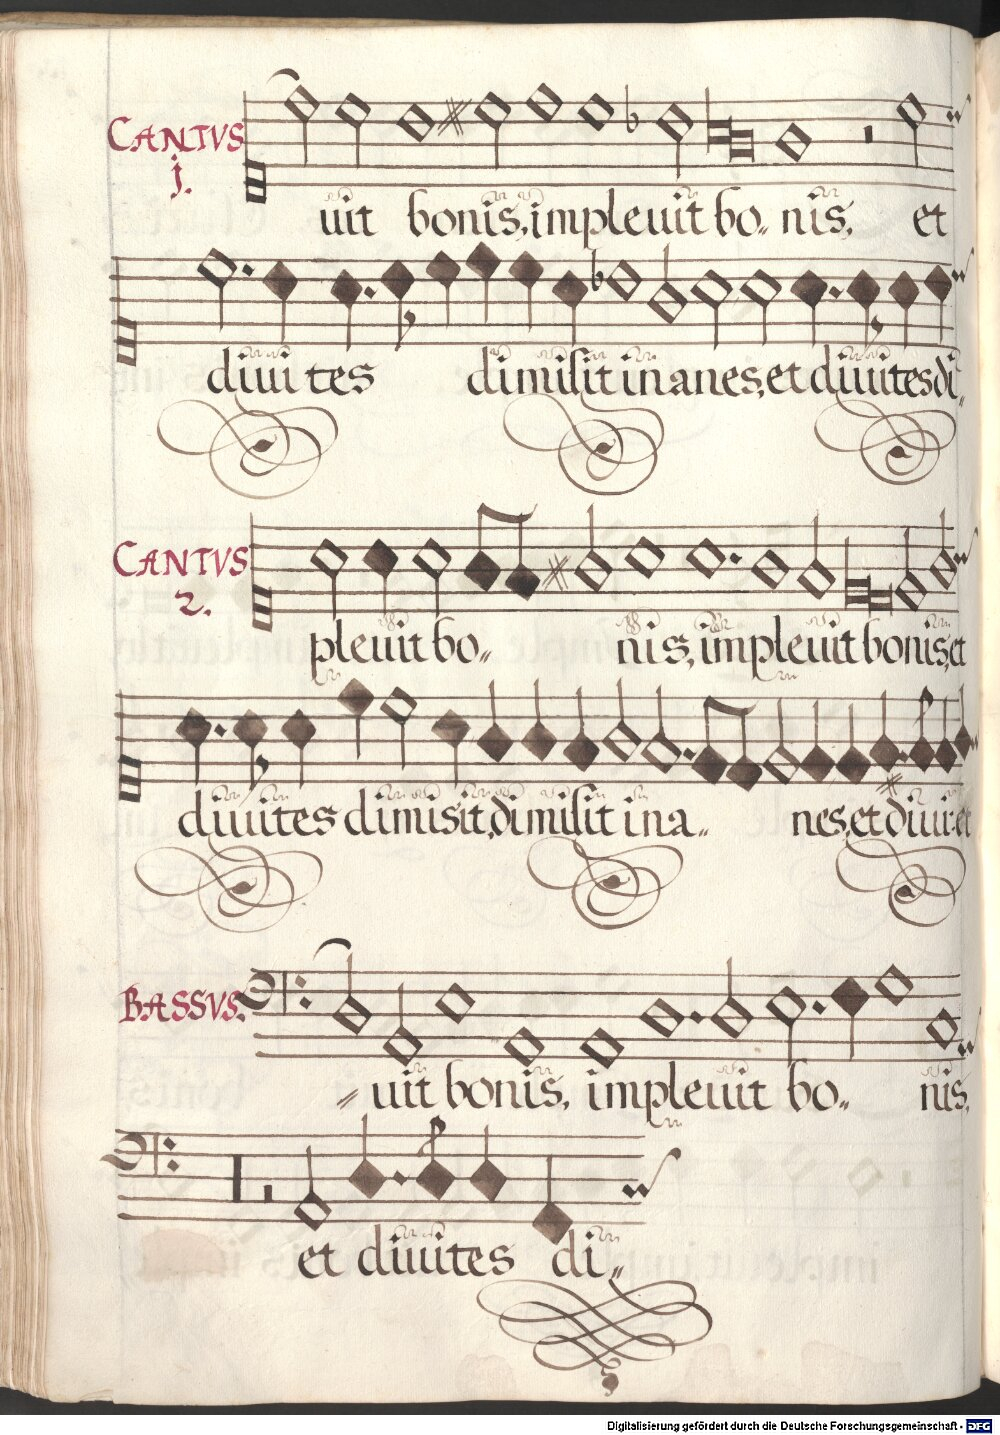 CANTVS
j.
uit bonis, impleuit bo„ nis, et
diuites dimisit inanes, et diuites di„
CANTVS
2.
pleuit bo„ nis, impleuit bonis, et
diuites dimisit, dimisit ina„ nes, et diuit: et
BASSVS.
uit bonis, impleuit bo„ nis,
et diuites di„
Digitalisierung gefördert durch die Deutsche Forschungsgemeinschaft - DFG